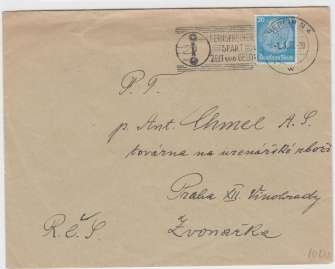 FERNSPRECHER
SPART
ZEIT UND GELD
BERLIN N 4
20
Deutsches Reich
w
P. T.
p. Ant. Chmel A. S.
továrna na uzenářské zboží
Praha XII. Vinohrady
R. Č. S.
Zvonařka